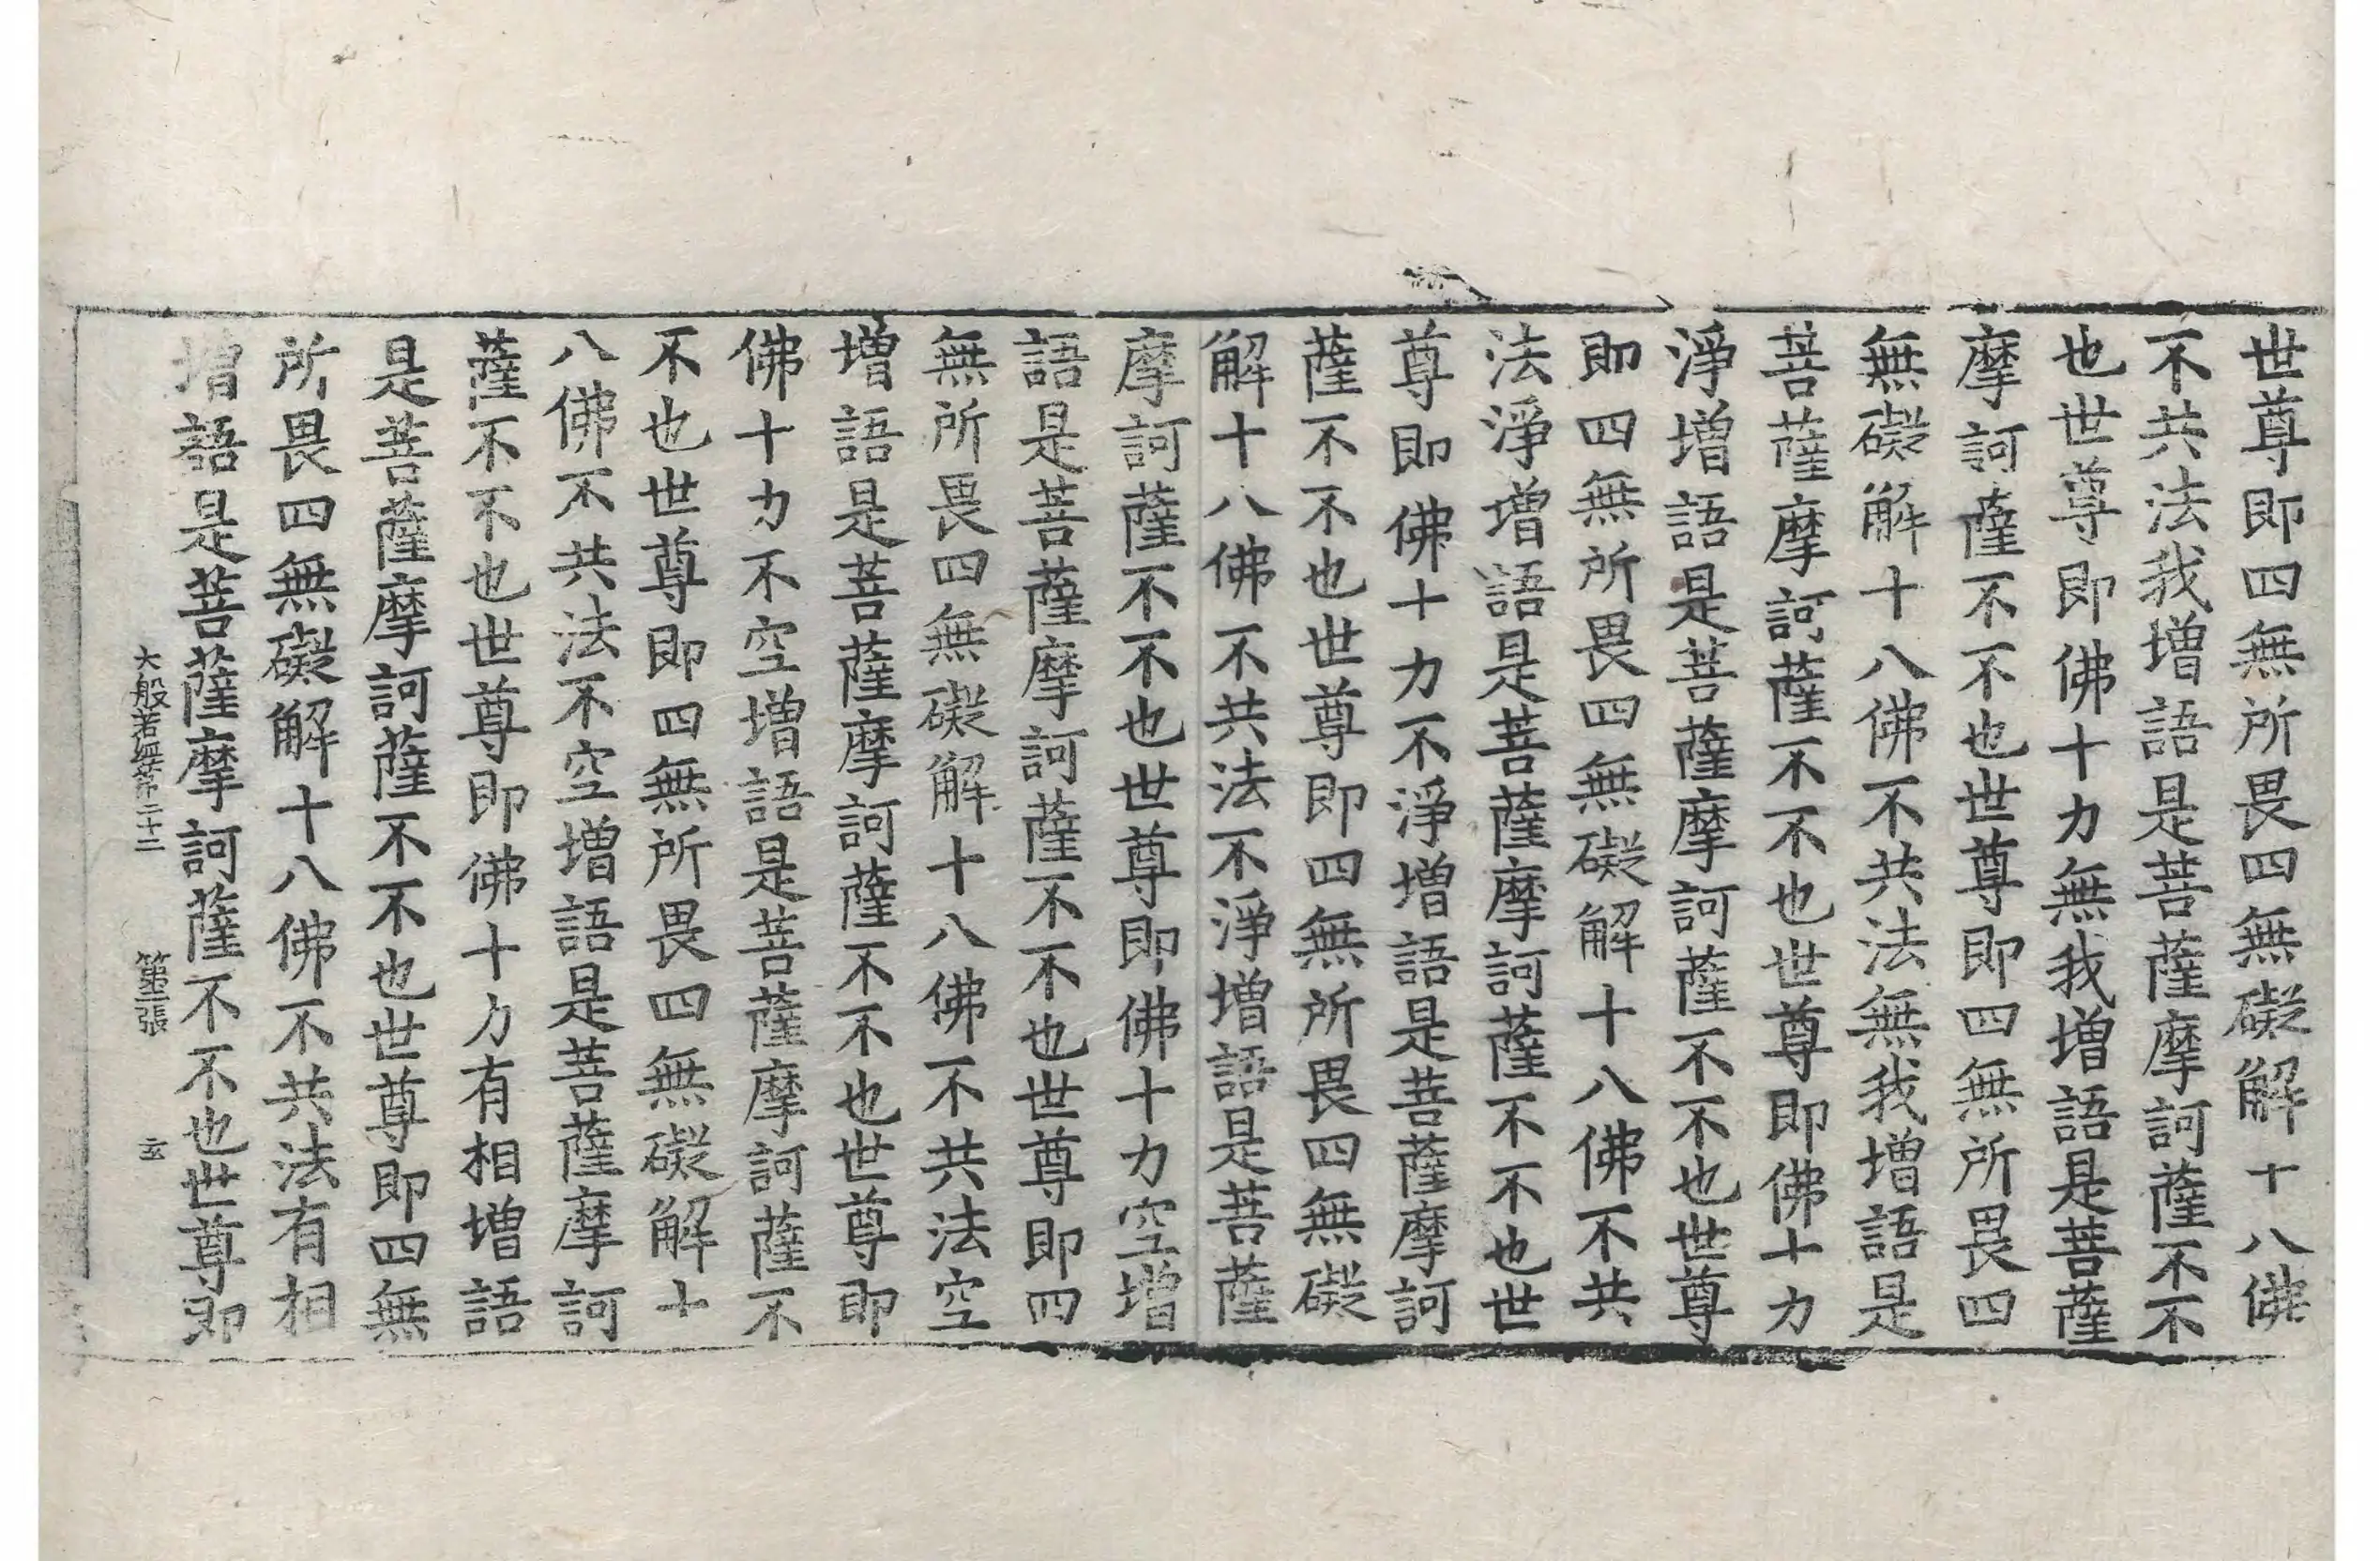 世尊即四無所畏四無礙解十八佛
不共法我增語是菩薩摩訶薩不不
也世尊即佛十力無我增語是菩薩
摩訶薩不不也世尊即四無所畏四
無礙解十八佛不共法無我增語是
菩薩摩訶薩不不也世尊即佛十力
淨增語是菩薩摩訶薩不不也世尊
即四無所畏四無礙解十八佛不共
法淨增語是菩薩摩訶薩不不也世
尊即佛十力不淨增語是菩薩摩訶
薩不不也世尊即四無所畏四無礙
解十八佛不共法不淨增語是菩薩
摩訶薩不不也世尊即佛十力空增
語是菩薩摩訶薩不不也世尊即四
無所畏四無礙解十八佛不共法空
增語是菩薩摩訶薩不不也世尊即
佛十力不空增語是菩薩摩訶薩不
不也世尊即四無所畏四無礙解十
八佛不共法不空增語是菩薩摩訶
薩不不也世尊即佛十力有相增語
是菩薩摩訶薩不不也世尊即四無
所畏四無礙解十八佛不共法有相
增語是菩薩摩訶薩不不也世尊即
大般若經第二十二 第 張